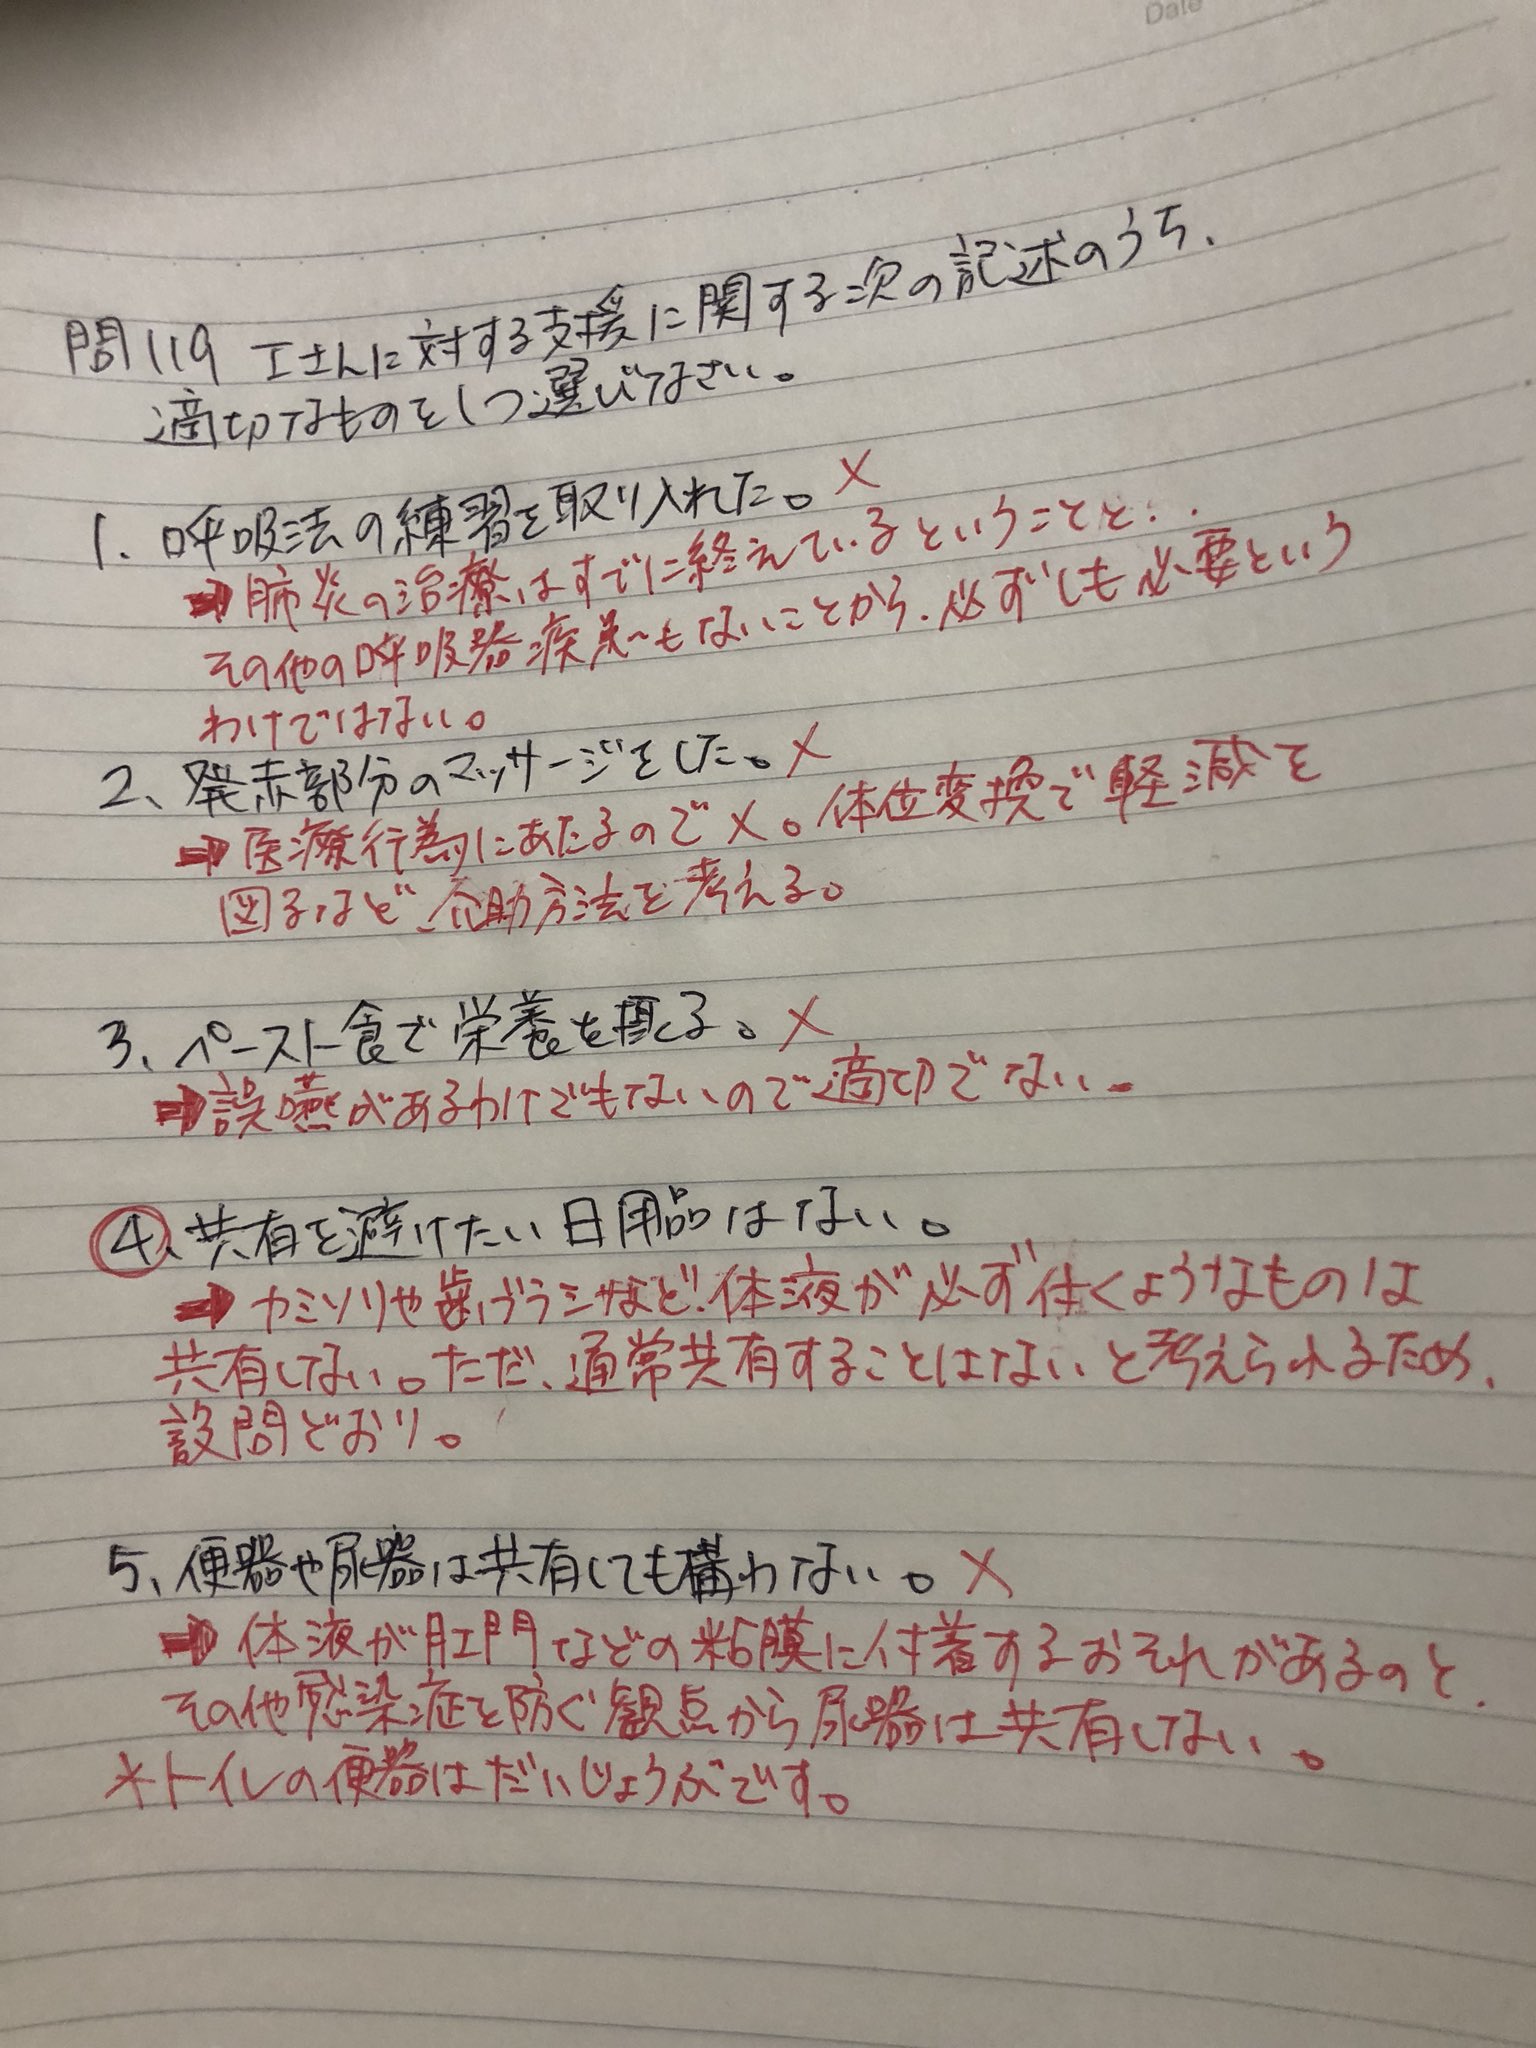 Date
問119 Iさんに対する支援に関する次の記述のうち、
適切なものを1つ選びなさい。
1. 呼吸法の練習を取り入れた。×
➡肺炎の治療はすでに終えているということと、
その他の呼吸器疾患もないことから、必ずしも必要という
わけではない。
2、発赤部分のマッサージをした。×
➡医療行為にあたるので×。体位変換で軽減を
図るなど、介助方法を考える。
3、ペースト食で栄養を摂る。×
➡誤嚥があるわけでもないので適切でない。
④、共有を避けたい日用品はない。
➡カミソリや歯ブラシなど、体液が必ず付くようなものは
共有しない。ただ、通常共有することはないと考えられるため、
設問どおり。
5、便器や尿器は共有しても構わない。×
➡体液が肛門などの粘膜に付着するおそれがあるのと、
その他感染症を防ぐ観点から尿器は共有しない。
*トイレの便器はだいじょうぶです。